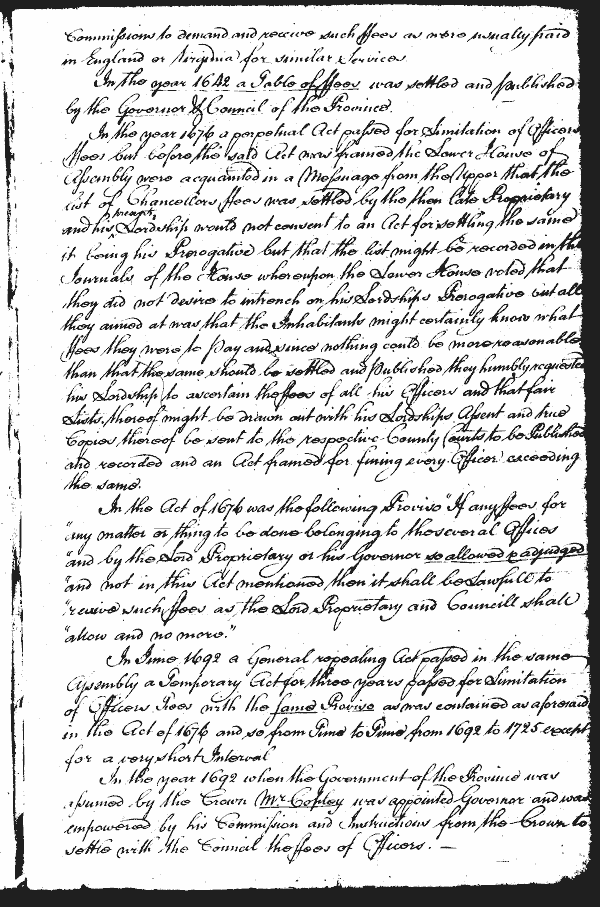 Commissions to demand and receive such ffees as were usually paid
in England or Virginia for similar Services
In the year 1642 a Table of ffees was settled and published
by the Governor & Council of the Province.
In the year 1676 a perpetual Act passed for Limitation of Officers
ffees but before the said Act was framed the Lower House of
Assembly were acquainted in a Message from the Upper that the
list of Chancellors ffees was settled by the then late Proprietary
and his present Lordship would not consent to an Act for settling the same
it being his Prerogative but that the list might be recorded in the
Journals of the House whereupon the Lower House voted that
they did not desire to intrench on his Lordships Prerogative but all
they aimed at was that the Inhabitants might certainly know what
ffees they were to Pay and since nothing could be more reasonable
than that the same should be settled and Published they humbly requested
his Lordship to ascertain the ffees of all his Officers and that fair
Lists thereof might be drawn out with his Lordships Assent and true
Copies thereof be sent to the respective County Courts to be Published
and recorded and an Act framed for fining every Officer exceeding
the same.
In the Act of 1676 was the following Proviso "If any ffees for
"any matter or thing to be done belonging to the several Offices
"and by the Lord Proprietary or his Governor so allowed & adjudged
"and not in this Act mentioned then it shall be Lawfull to
"receive such ffees as the Lord Proprietary and Councill shall
"allow and no more."
In June 1692 a General repealing Act passed in the same
Assembly a Temporary Act for three years passed for Limitation
of Officers Fees with the same Proviso as was contained as aforesaid
in the Act of 1676 and so from Time to Time from 1692 to 1725 except
for a very short Interval
In the year 1692 when the Government of the Province was
assumed by the Crown Mr Copley was appointed Governor and was
empowered by his Commission and Instructions from the Crown to
settle with the Council the ffees of Officers. —